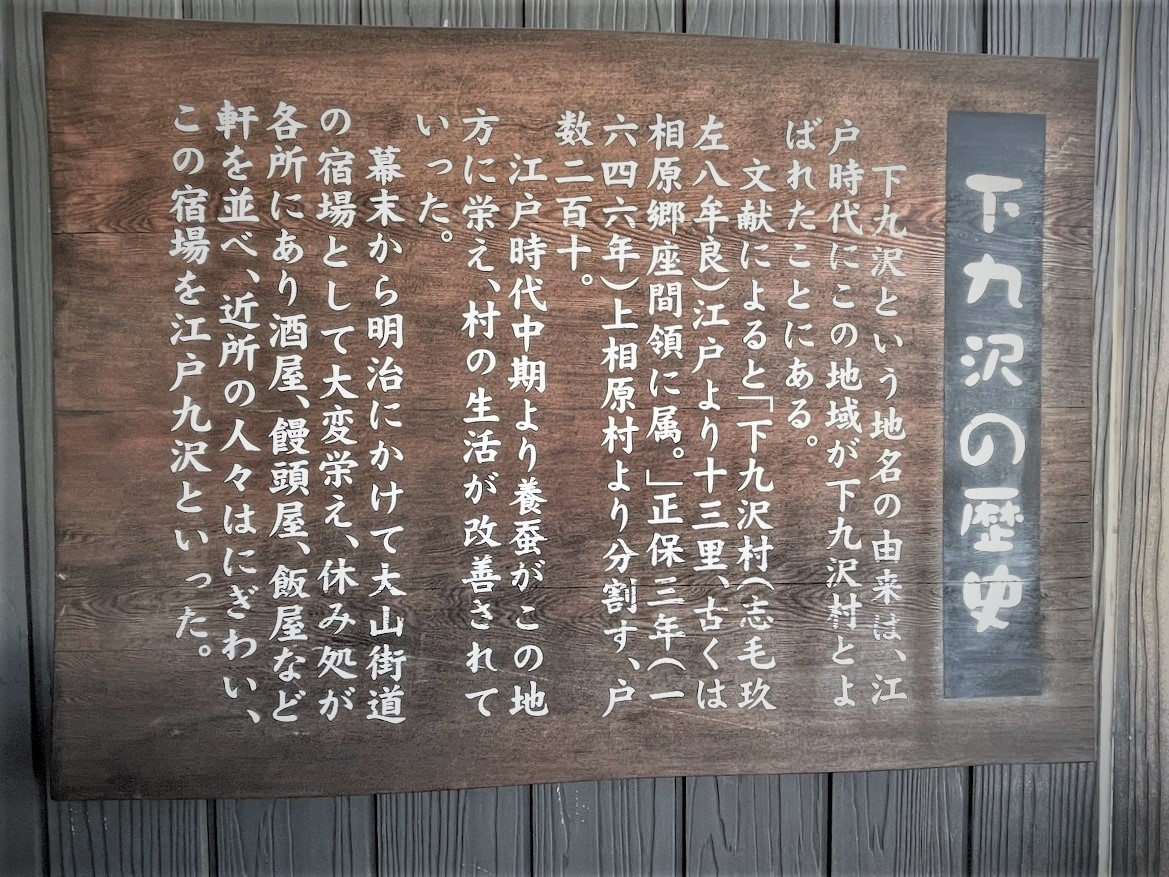 下九沢の歴史
下九沢という地名の由来は、江
戸時代にこの地域が下九沢村とよ
ばれたことにある。
文献によると「下九沢村（志毛玖
左八牟良）江戸より十三里、古くは
相原郷座間領に属。」正保三年（一
六四六年）上相原村より分割す、戸
数二百十。
江戸時代中期より養蚕がこの地
方に栄え、村の生活が改善されて
いった。
幕末から明治にかけて大山街道
の宿場として大変栄え、休み処が
各所にあり酒屋、饅頭屋、飯屋など
軒を並べ、近所の人々はにぎわい、
この宿場を江戸九沢といった。